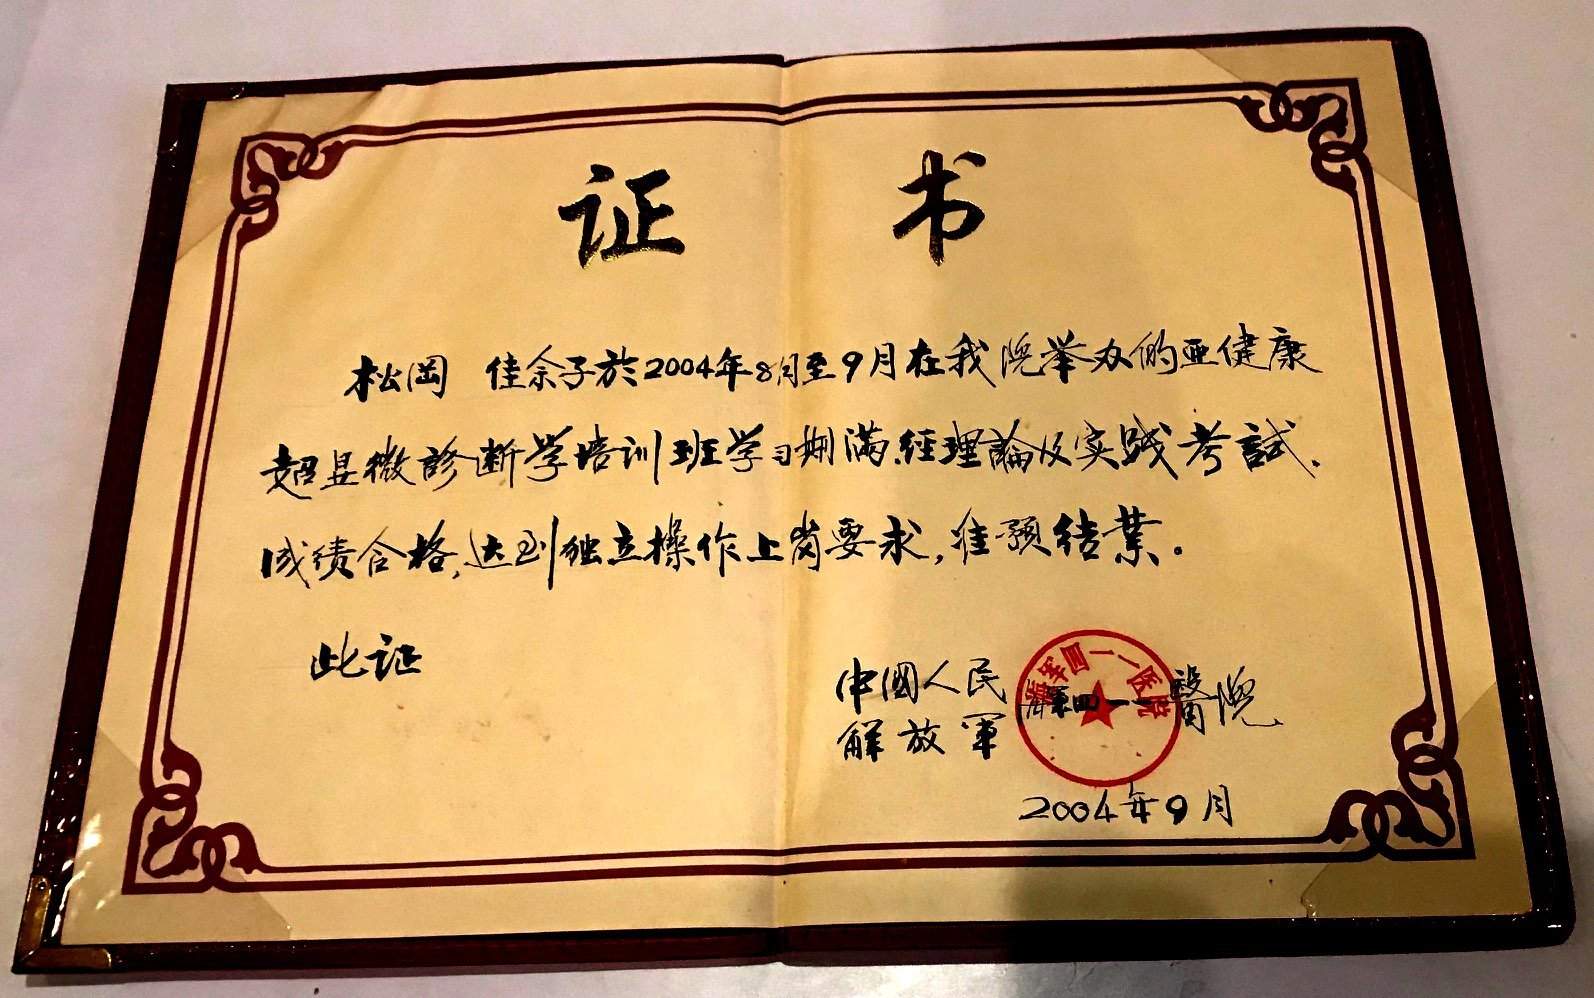 证 书
松岡 佳余子於2004年8月至9月在我院举办的亚健康
超显微診断学培训班学习期满.经理論及实践考試、
成绩合格,达到独立操作上岗要求,准预结業。
此证
中國人民
解放軍
海軍四一一醫院
海军四一一医院
2004年9月